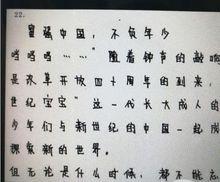 22.
皇强中国,不负年少
哈哈哈……"随着钟声的敲响
是改革开放四十周年的到来,
世纪宝宝"这一代长大成人的
少年们与新世纪的中国一起成
探索新的世界。
但无论是什么时候,都不能忘